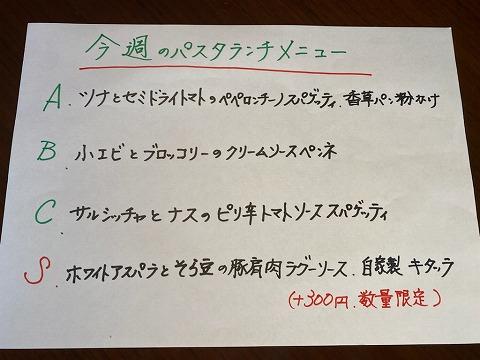 今週のパスタランチメニュー
A. ツナとセミドライトマトのペペロンチーノスパゲッティ.香草パン粉かけ
B. 小エビとブロッコリーのクリームソースペンネ
C. サルシッチャとナスのピリ辛トマトソーススパゲッティ
S. ホワイトアスパラとそら豆の豚肩肉ラグーソース.自家製キタッラ
(+300円.数量限定)